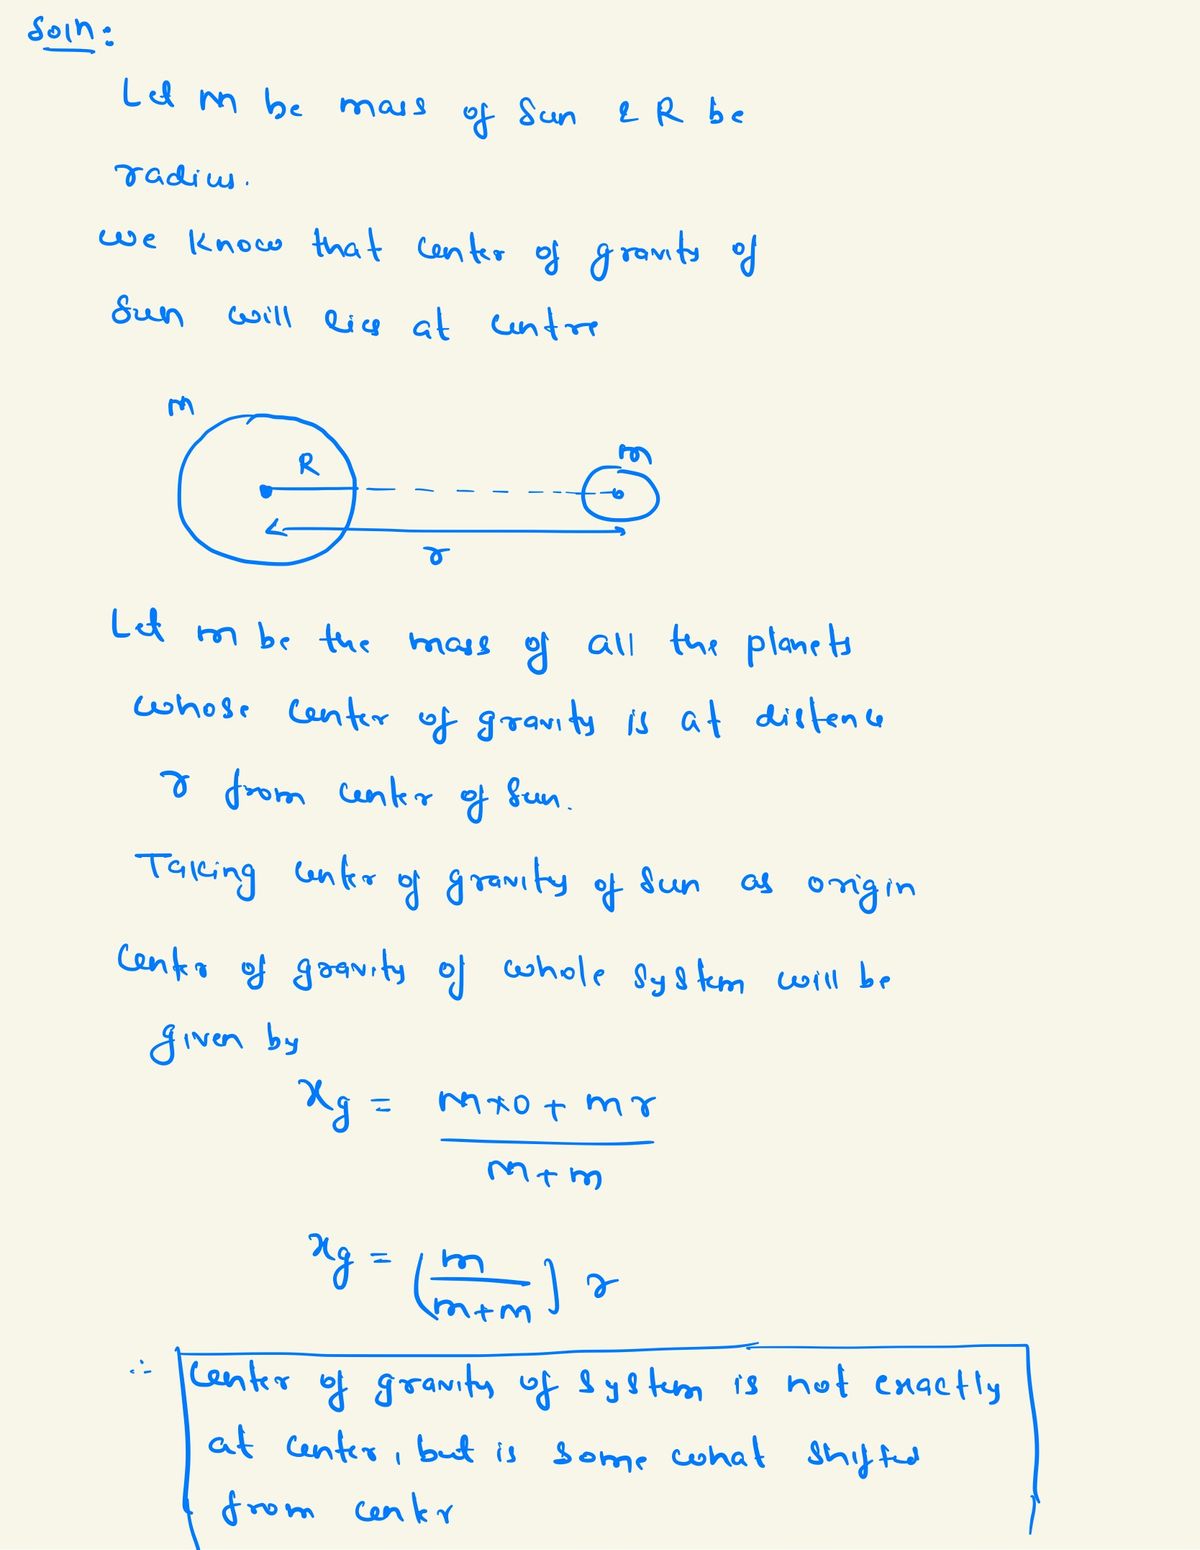 Soln:
Let M be mass of Sun & R be
radius.
we know that center of gravity of
Sun will lies at centre
M
m
R
r
Let m be the mass of all the planets
whose center of gravity is at distence
r from center of Sun.
Taking center of gravity of Sun as origin
Center of gravity of whole system will be
given by
xg = M×0 + mr
M+m
xg = (m
m+M) r
∴ Center of gravity of system is not exactly
at center, but is some what shifted
from center